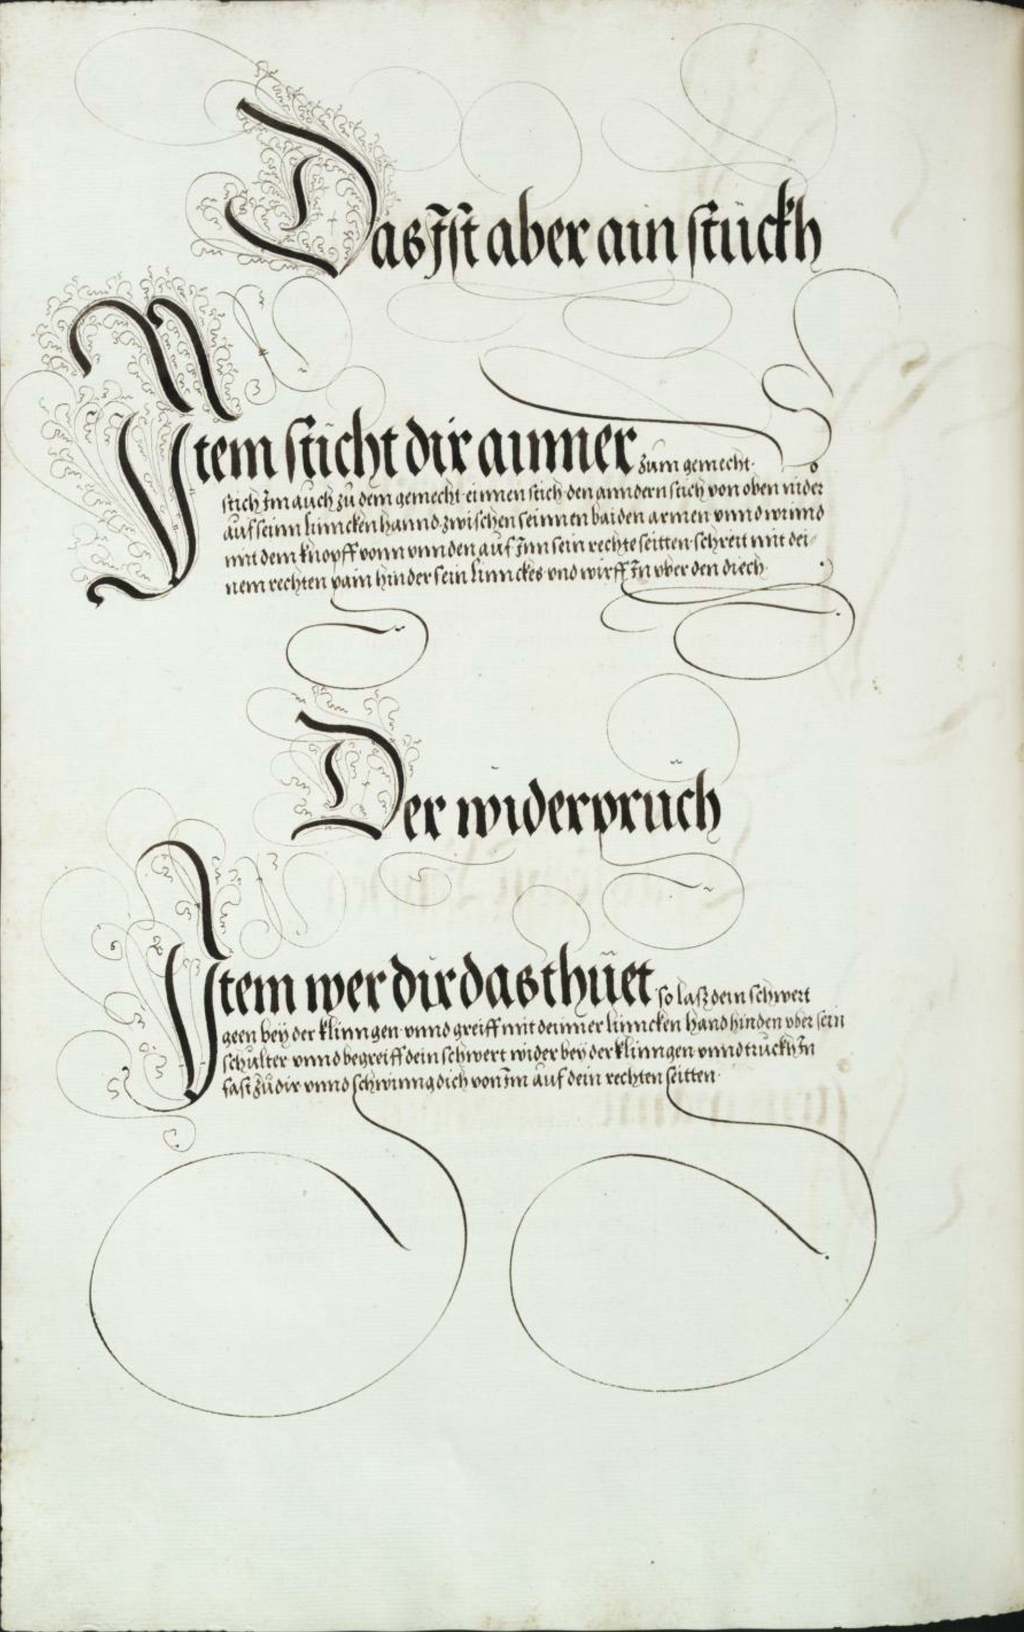 Das Ist aber ain stückh
Item sticht dir ainner zum gemecht·
stich Im auch zu dem gemecht einnen stich den anndern stich von oben nider
auf seinn linncken hannd zwischen seinnen baiden armen vnnd winnd
mit dem knopff vonn vnnden auf Inn sein rechte seitten schreit mit dei-
nem rechten pain hinder sein linnckes vnd wirff In vber den diech·
Der widerpruch
Item wer dir das thüet so lasz dein schwert
geen bey der klinngen vnnd greiff mit deinner linncken hand hinden vber sein
schulter vnnd begreiff dein schwert wider bey der klinngen vnnd truckh In
fast zu dir vnnd schwinng dich von Im auf dein rechten seitten·